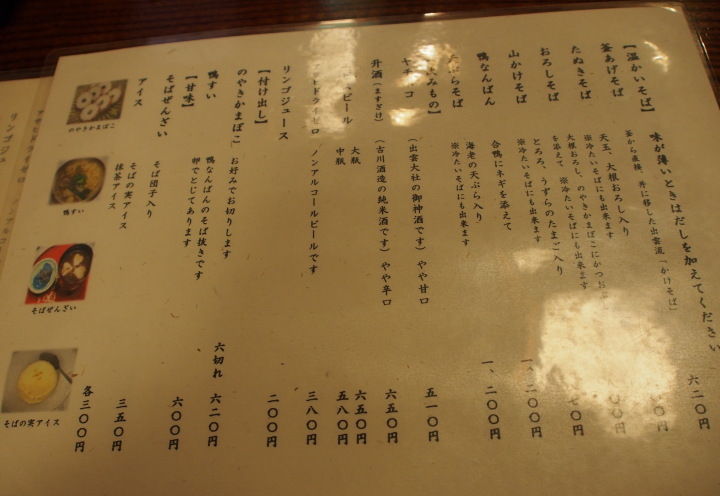 【温かいそば】 味が薄いときはだしを加えてください
釜あげそば 釜から直接、丼に移した出雲流「かけそば」 六二〇円
たぬきそば 天玉、大根おろし入り
※冷たいそばにも出来ます
おろしそば 大根おろし、のやきかまぼこにかつおぶし
を添えて ※冷たいそばにも出来ます
山かけそば とろろ、うずらのたまご入り
※冷たいそばにも出来ます 一、二〇〇円
鴨なんばん 合鴨にネギを添えて
そば 海老の天ぷら入り 一、二〇〇円
※冷たいそばにも出来ます
みもの】
（出雲大社の御神酒です）やや甘口 五一〇円
升酒（ますざけ） （古川酒造の純米酒です）やや辛口 六五〇円
ビール 大瓶 六五〇円
中瓶 五八〇円
ドライゼロ ノンアルコールビールです 三八〇円
リンゴジュース 二〇〇円
【付け出し】
のやきかまぼこ お好みでお切りします 六切れ 六二〇円
鴨すい 鴨なんばんのそば抜きです 六〇〇円
卵でとじてあります
【甘味】
そばぜんざい そば団子入り 三五〇円
アイス そばの実アイス 各三〇〇円
抹茶アイス
のやきかまぼこ
鴨すい
そばぜんざい
そばの実アイス
リンゴジュ